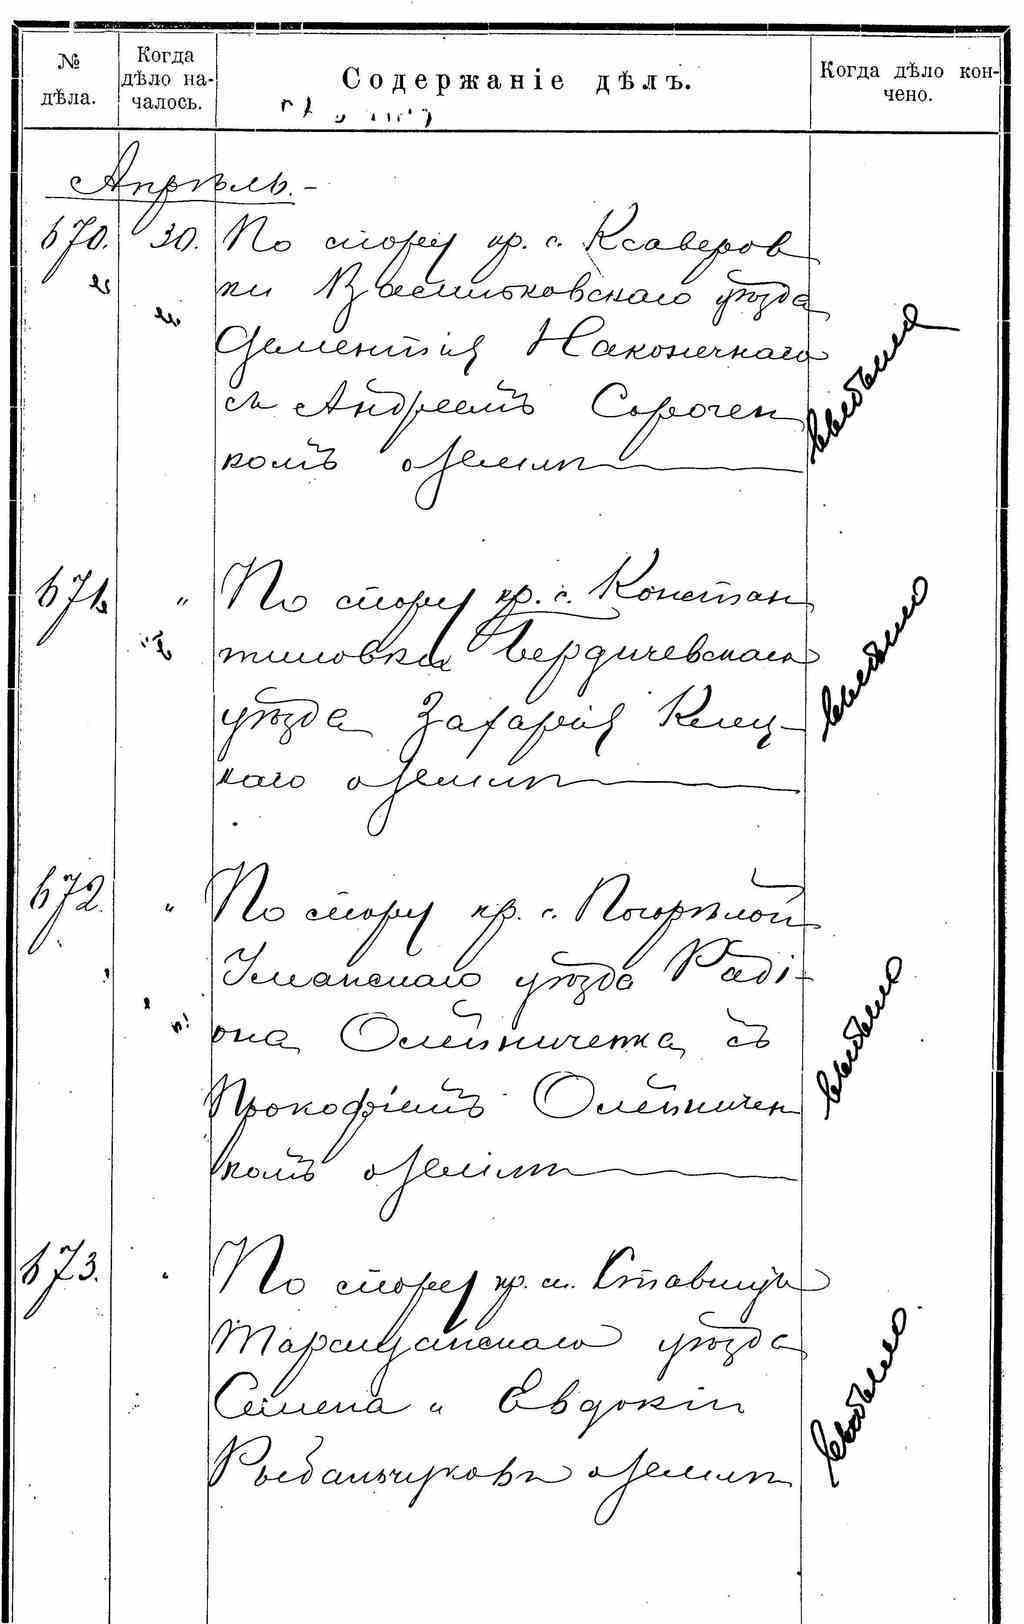 № дѣла.
Когда дѣло на-
чалось.
Содержаніе дѣлъ.
Когда дѣло кон-
чено.
Апрѣль.-
670. 30. По спору кр. с. Ксаверов
ки Васильковскаго уѣзда
Дементія Наконечнаго
съ Андреемъ Сорочен
комъ о землѣ
671. " По спору кр. с. Констан
тиновки Бердичевскаго
уѣзда Захарія Клец-
каго о землѣ
672. " По спору кр. с. Погорѣлой
Уманскаго уѣзда Раді-
она Олейниченка съ
Прокофіемъ Олейничен
комъ о землѣ
673. " По спору кр. м. Ставищъ
Таращанскаго уѣзда
Семена и Евдокіи
Рыбальчуковъ о землѣ